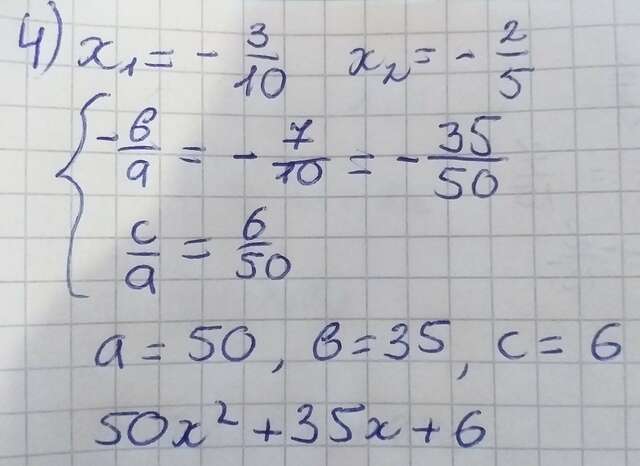 4) x₁ = - 3/10 x₂ = - 2/5
{ - в/а = - 7/10 = - 35/50
с/а = 6/50
а = 50, в = 35, с = 6
50x² + 35x + 6